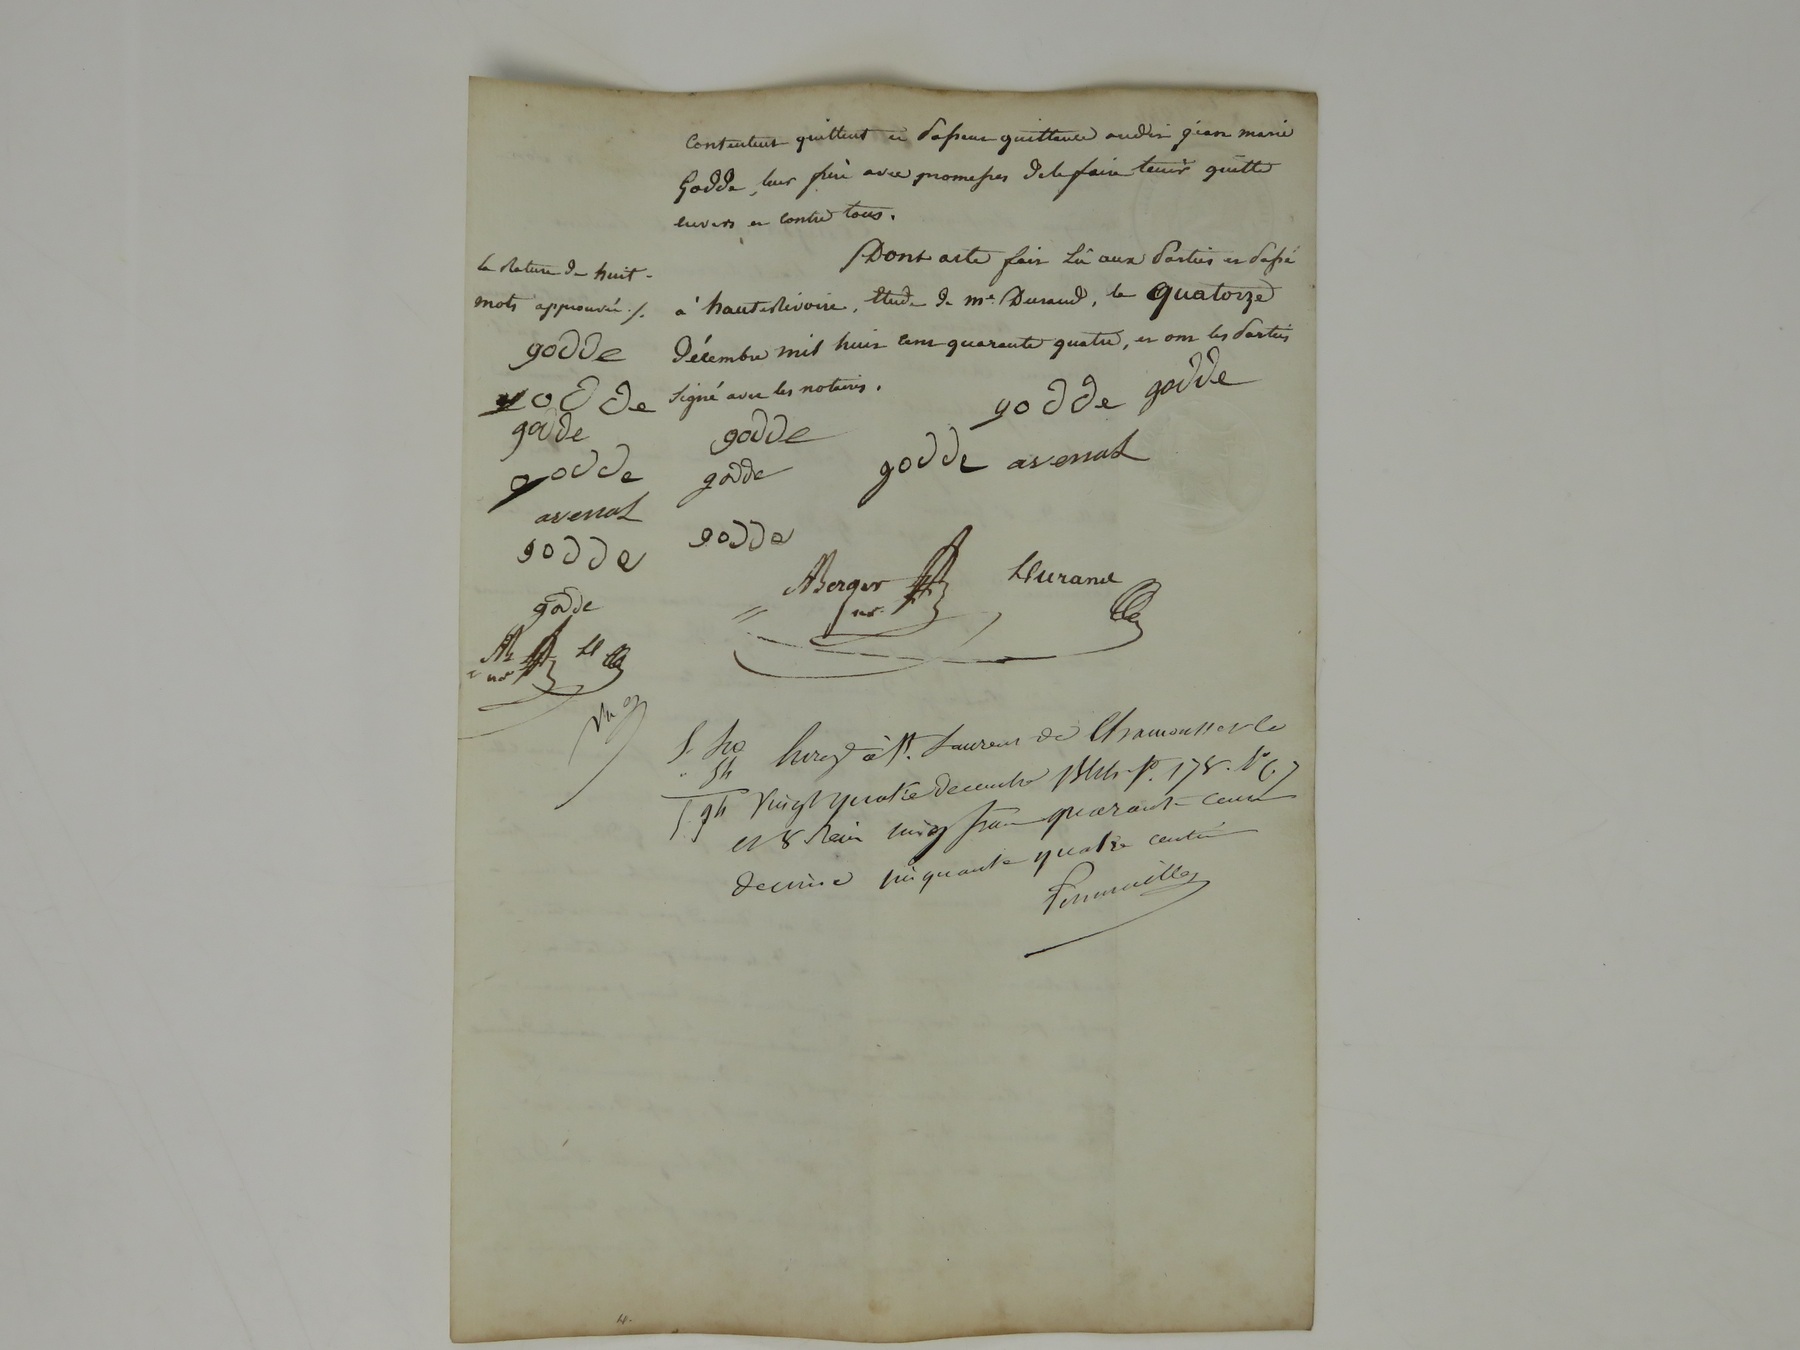 Contentent quittent et passent quittance audit jean marie
godde, leur frère avec promesses de le faire tenir quitte
envers et contre tous.
Dont acte fait Lû aux Parties et passé
à hauterivoire, Etude de me. Durand, le quatorze
décembre mil huit cent quarante quatre, et ont les Parties
signé avec les notaires.
La Rature de huit
mots approuvée ./.
godde
godde
godde
godde
avenat
godde
godde
godde godde
godde
godde avenat
godde
godde
ABerger
nre
Durand
Enregé à St. Laurent de Chamousset le
Vingt quatre decembre 1844 fo. 178. Vo C. 7
et 8 Reçu cinq francs quarante cent
decime cinquante quatre centi
4.